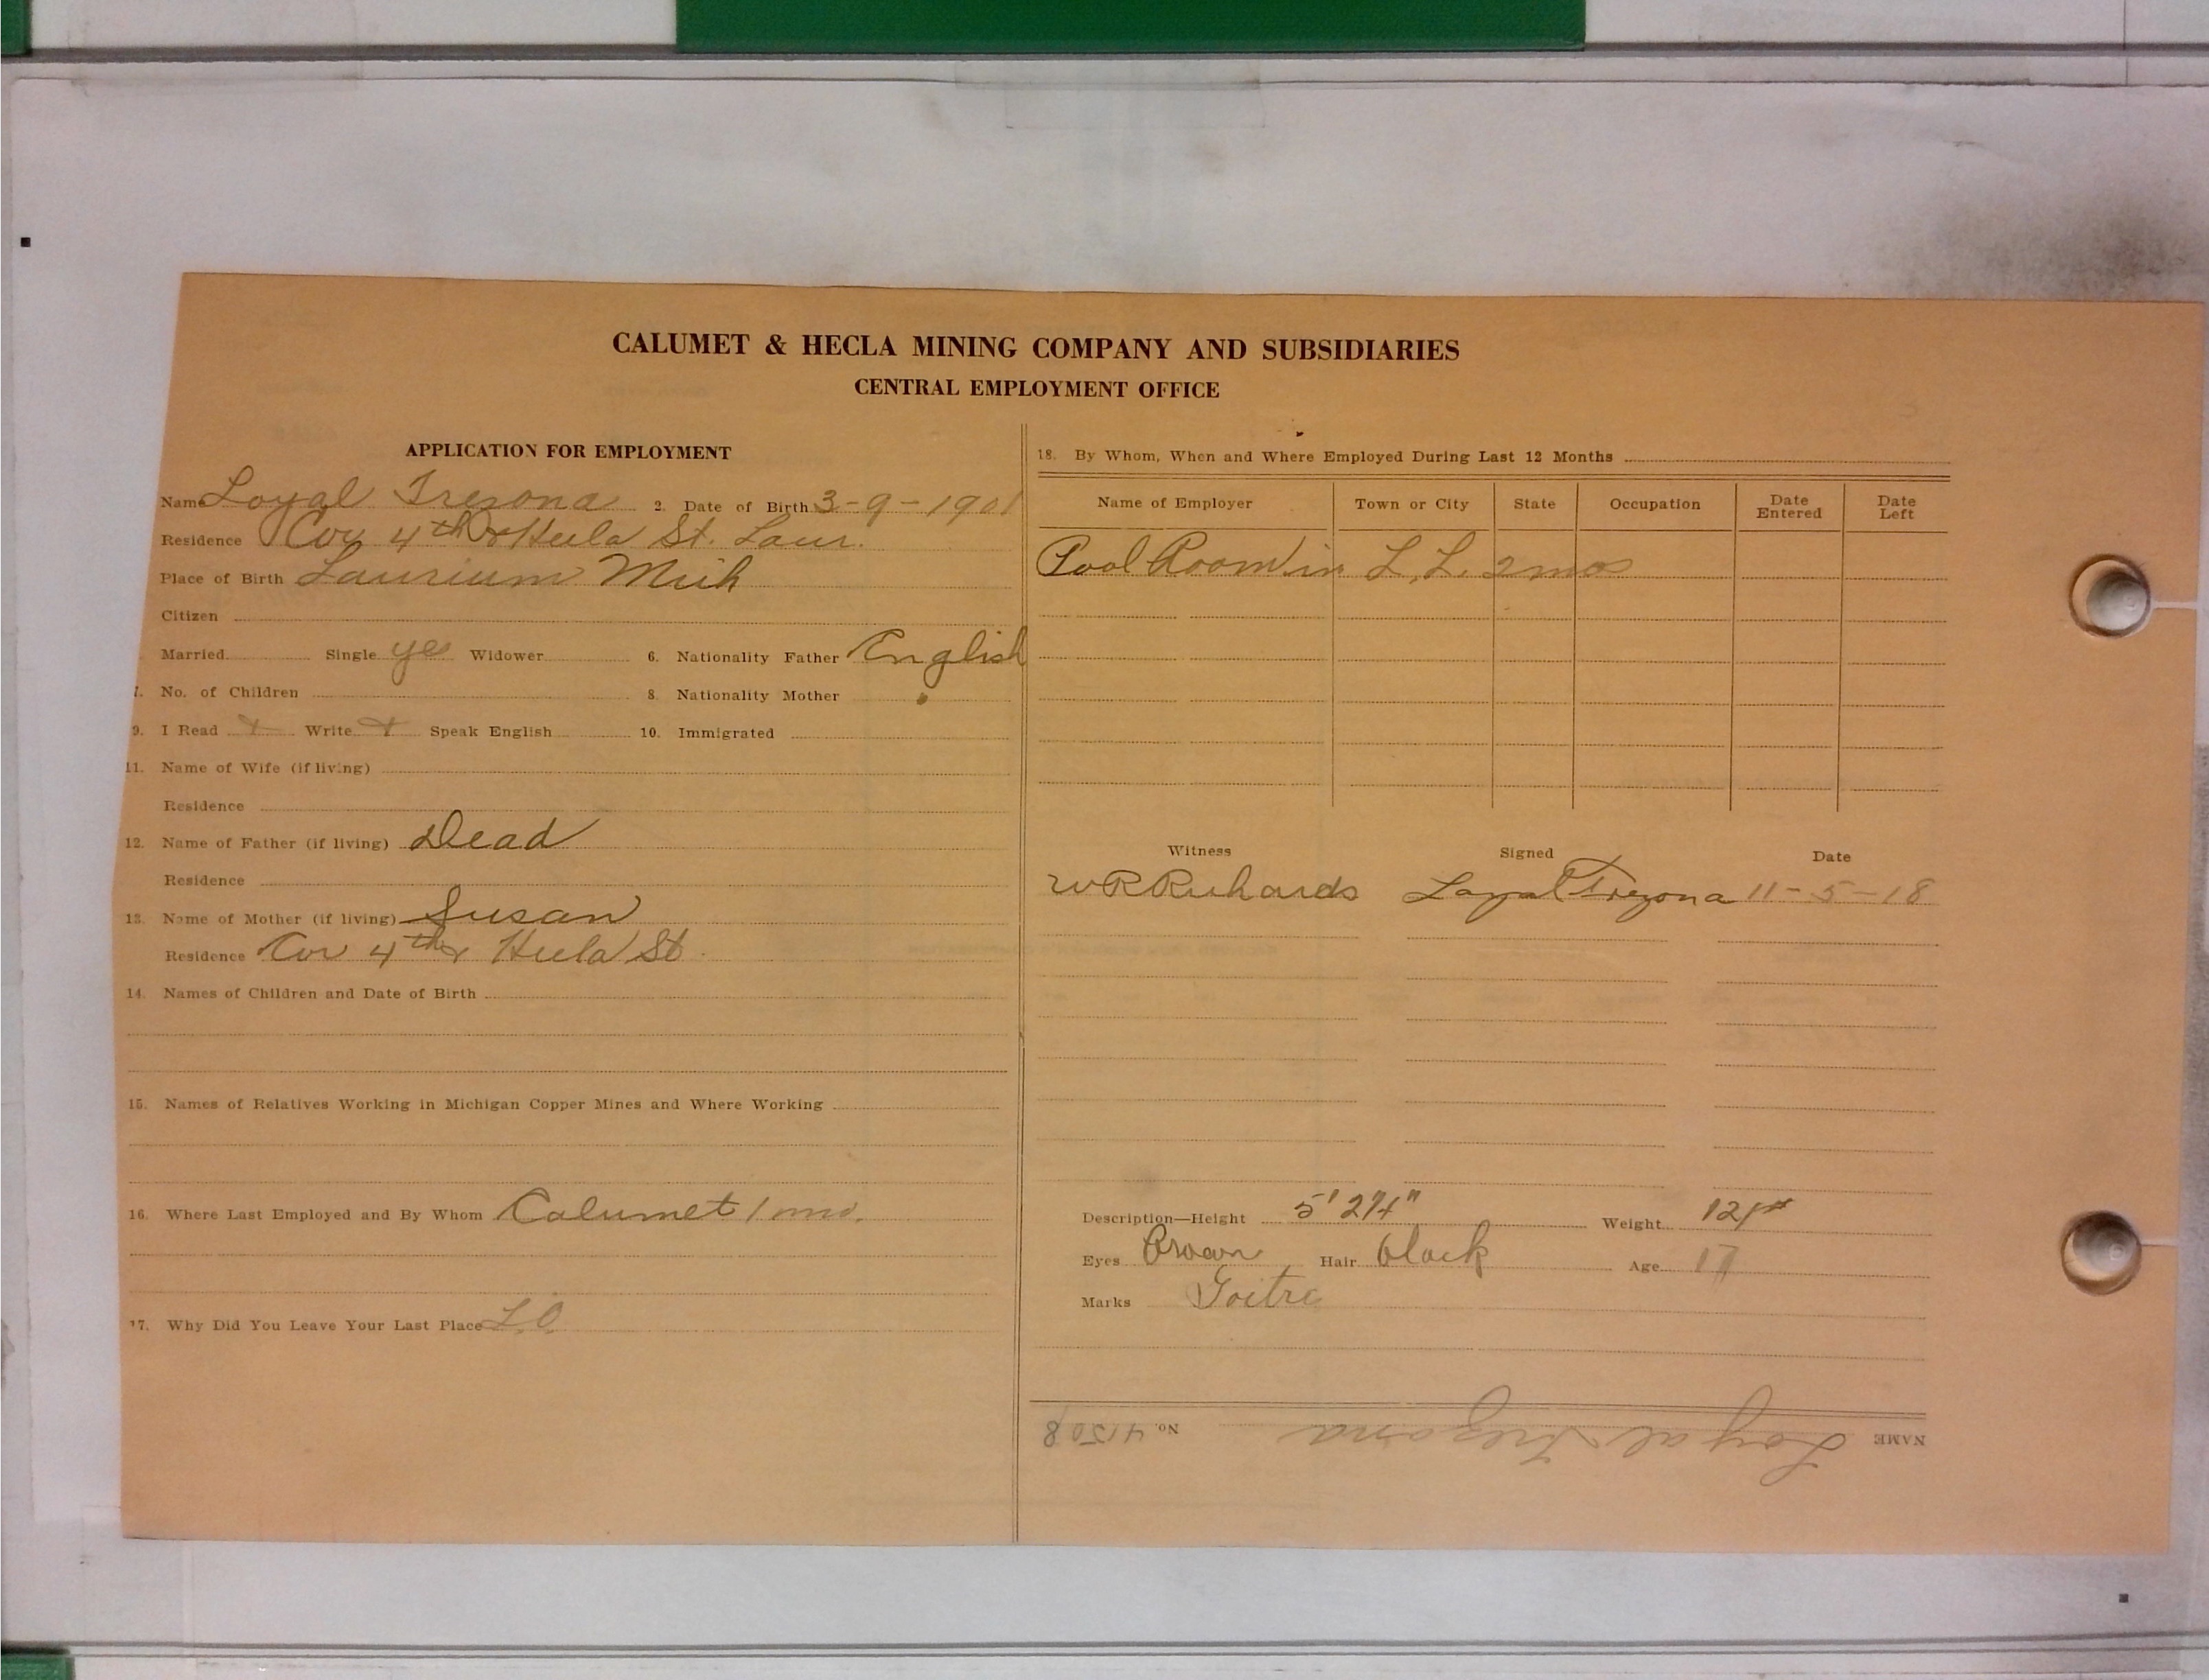 CALUMET & HECLA MINING COMPANY AND SUBSIDIARIES
CENTRAL EMPLOYMENT OFFICE
APPLICATION FOR EMPLOYMENT
Name Loyal Trezona 2. Date of Birth 3-9-1901
Residence Cor 4th & Hecla St. Laur.
Place of Birth Laurium Mich
Citizen
Married Single yes Widower 6. Nationality Father English
7. No. of Children 8. Nationality Mother "
9. I Read + Write + Speak English 10. Immigrated
11. Name of Wife (if living)
Residence
12. Name of Father (if living) Dead
Residence
13. Name of Mother (if living) Susan
Residence Cor 4th & Hecla St
14. Names of Children and Date of Birth
15. Names of Relatives Working in Michigan Copper Mines and Where Working
16. Where Last Employed and By Whom Calumet 1 mo.
17. Why Did You Leave Your Last Place L.O.
18. By Whom, When and Where Employed During Last 12 Months
Name of Employer Town or City State Occupation Date Entered Date Left
Pool Room in L.L. 2 mos
Witness Signed Date
W R Richards Loyal Trezona 11-5-18
Description—Height 5' 2¼" Weight 121#
Eyes Brown Hair black Age 17
Marks Goitre
NAME Loyal Trezona No. 41508